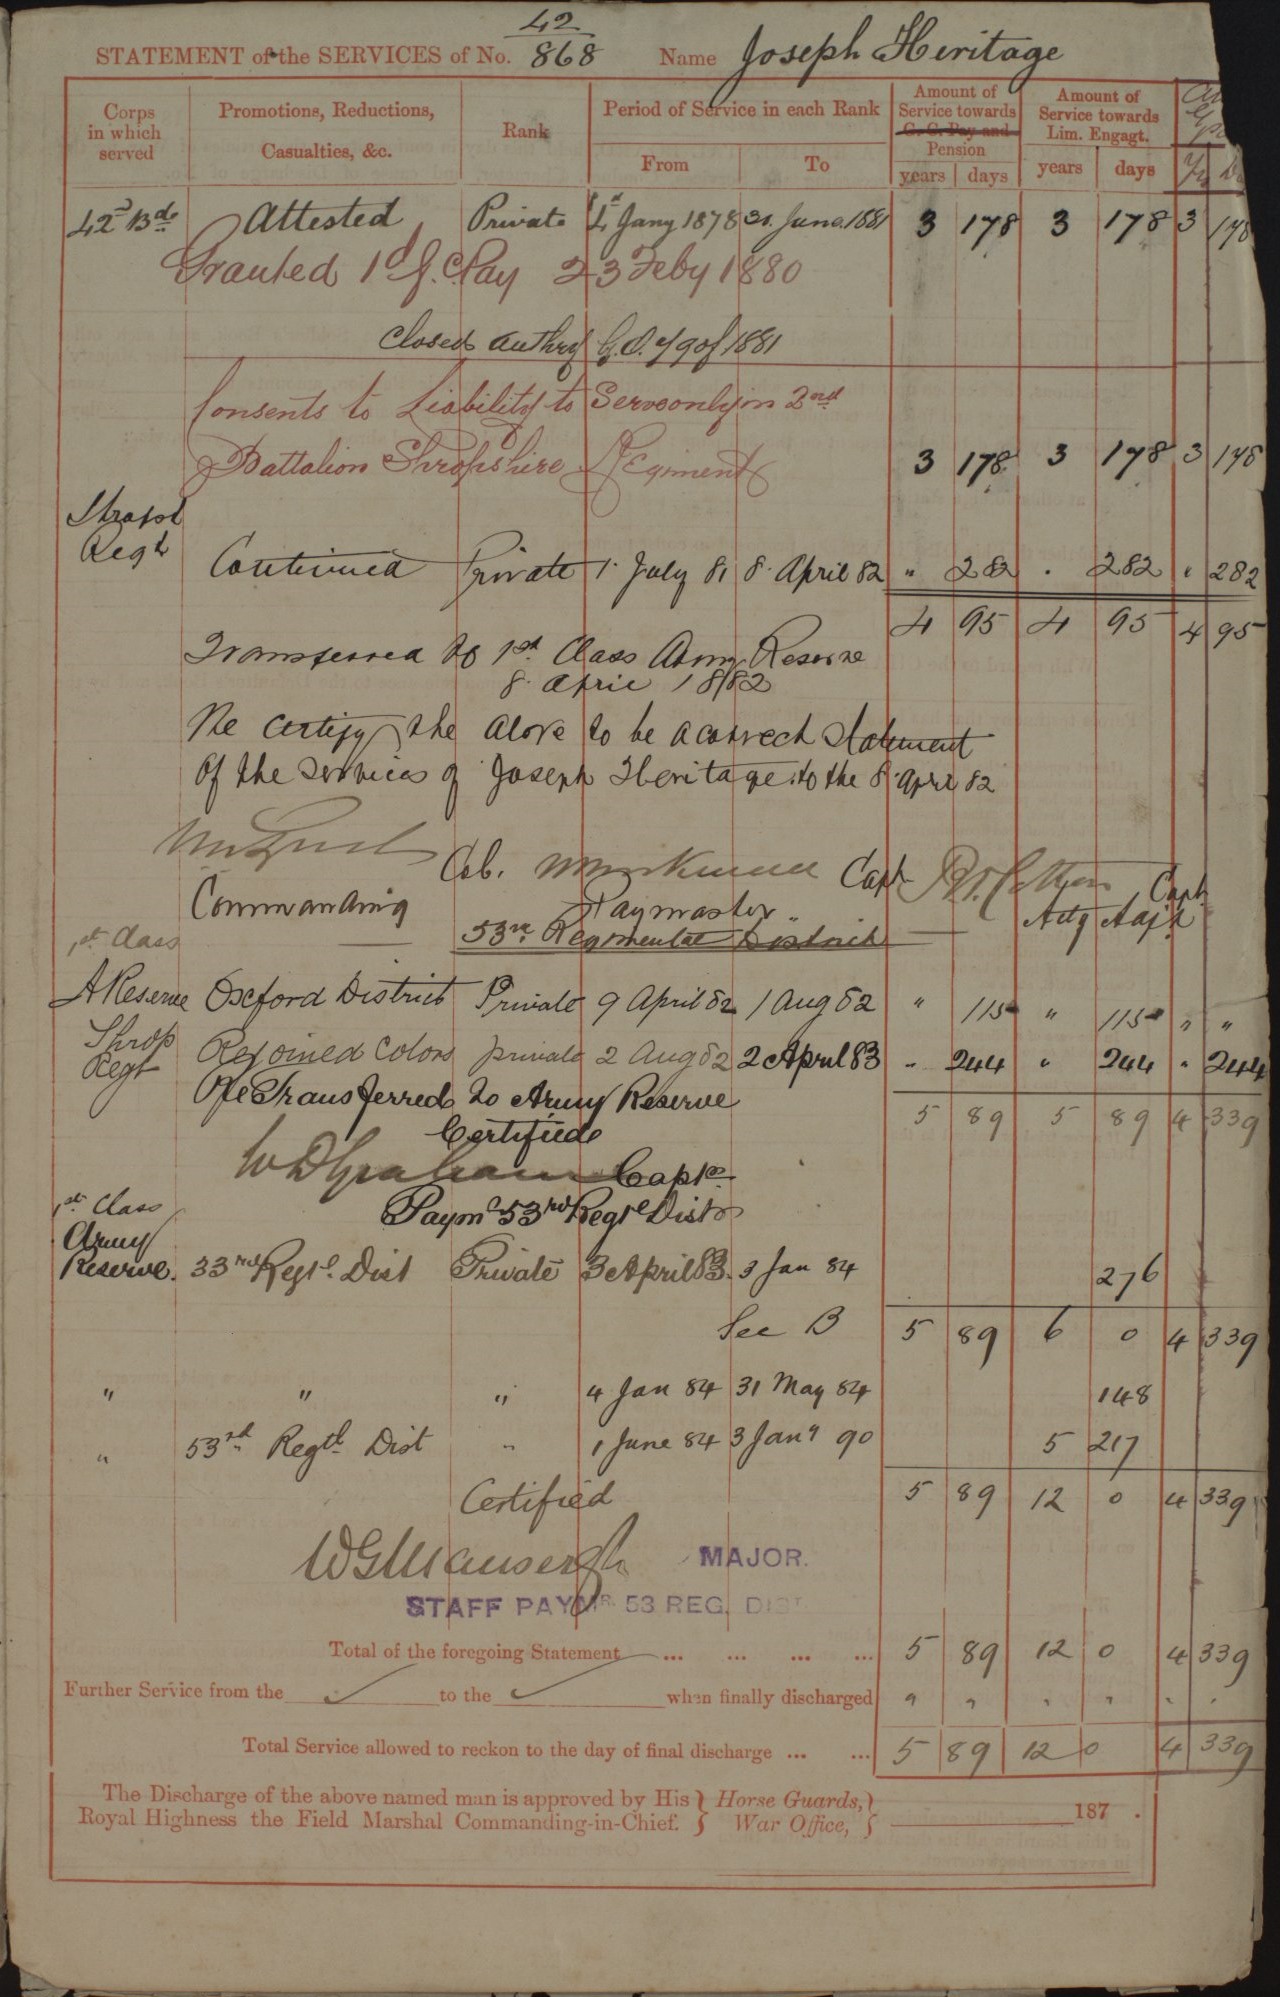 42
STATEMENT of the SERVICES of No. 868 Name Joseph Heritage
Corps in which served Promotions, Reductions, Casualties, &c. Rank Period of Service in each Rank From To Amount of Service towards G. C. Pay and Pension years days Amount of Service towards Lim. Engagt. years days
42d Bde Attested Private 4 Jany 1878 30. June 1881 3 178 3 178 3 178
Granted 1d g. c. Pay 23 Feby 1880
Closed Authy G.O. 79 of 1881
Consents to Liability to Serve only in 2nd
Battalion Shropshire Regiment 3 178 3 178 3 178
Shrops
Regt Continued Private 1 July 81 8 April 82 " 282 " 282 " 282
4 95 4 95 4 95
Transferred to 1st Class Army Reserve
8 April 1882
We certify the above to be a correct statement
of the services of Joseph Heritage to the 8 April 82
Col. Capt Capt
Commanding Paymaster Actg Adjt
53rd Regimental District
1st Class
A Reserve Oxford District Private 9 April 82 1 Aug 82 " 115 " 115 " "
Shrop
Regt Rejoined Colors private 2 Aug 82 2 April 83 " 244 " 244 " 244
ReTransferred to Army Reserve 5 89 5 89 4 339
Certified
W D Graham Capt
Paymr 53rd Regtl Dist
1st Class
Army
Reserve. 33rd Regtl. Dist Private 3 April 83 3 Jan 84 276
Sec B 5 89 6 0 4 339
" " " 4 Jan 84 31 May 84 148
" 53rd Regtl Dist " 1 June 84 3 Jany 90 5 217
Certified 5 89 12 0 4 339
MAJOR.
STAFF PAYMR. 53 REG. DIST
Total of the foregoing Statement ... ... ... ... 5 89 12 0 4 339
Further Service from the to the when finally discharged " " " " " "
Total Service allowed to reckon to the day of final discharge ... ... 5 89 12 0 4 339
The Discharge of the above named man is approved by His } Horse Guards, }
Royal Highness the Field Marshal Commanding-in-Chief. } War Office, } 187 .